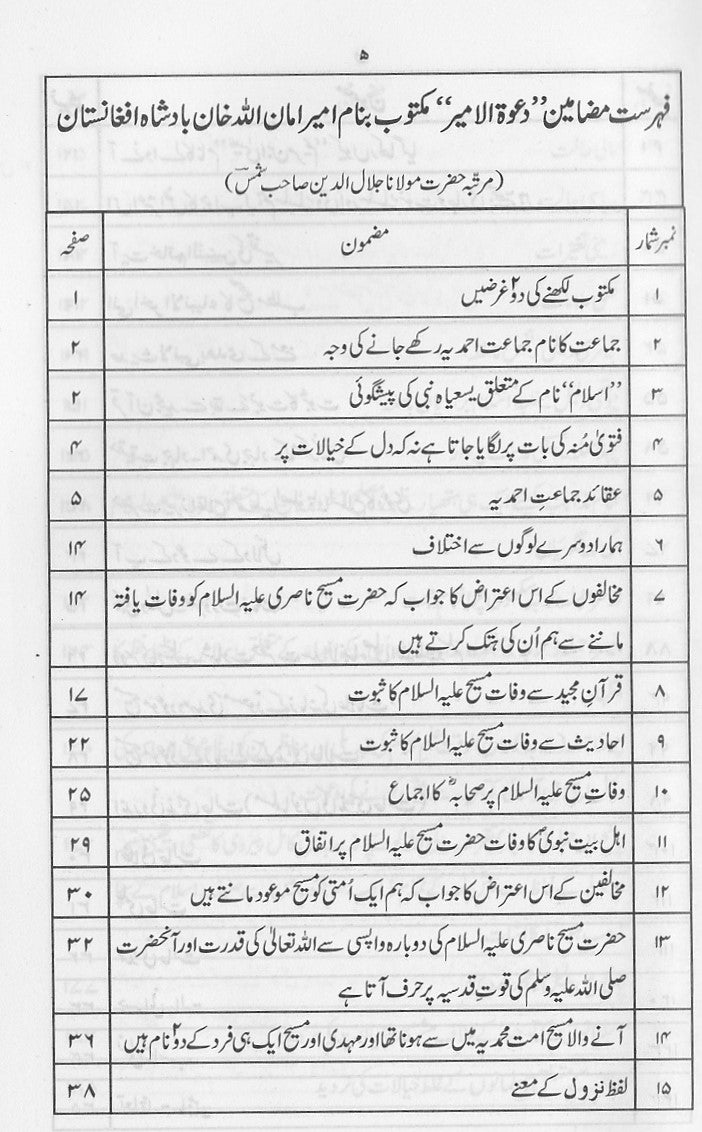 ۵
فہرست مضامین ”دعوۃ الامیر“ مکتوب بنام امیر امان اللہ خان بادشاہ افغانستان
(مرتبہ حضرت مولانا جلال الدین صاحب شمسؔ)
نمبر شمار مضمون صفحہ
۱ مکتوب لکھنے کی دو۲ غرضیں ۱
۲ جماعت کا نام جماعت احمدیہ رکھے جانے کی وجہ ۲
۳ ”اسلام“ نام کے متعلق یسعیاہ نبی کی پیشگوئی ۲
۴ فتویٰ مُنہ کی بات پر لگایا جاتا ہے نہ کہ دل کے خیالات پر ۴
۵ عقائد جماعتِ احمدیہ ۵
۶ ہمارا دوسرے لوگوں سے اختلاف ۱۴
۷ مخالفوں کے اس اعتراض کا جواب کہ حضرت مسیح ناصری علیہ السلام کو وفات یافتہ ۱۴
ماننے سے ہم اُن کی ہتک کرتے ہیں
۸ قرآنِ مجید سے وفات مسیح علیہ السلام کا ثبوت ۱۷
۹ احادیث سے وفات مسیح علیہ السلام کا ثبوت ۲۲
۱۰ وفاتِ مسیح علیہ السلام پر صحابہؓ کا اجماع ۲۵
۱۱ اہل بیت نبویؐ کا وفات حضرت مسیح علیہ السلام پر اتفاق ۲۹
۱۲ مخالفین کے اس اعتراض کا جواب کہ ہم ایک اُمتی کو مسیح موعود مانتے ہیں ۳۰
۱۳ حضرت مسیح ناصری علیہ السلام کی دوبارہ واپسی سے اللہ تعالیٰ کی قدرت اور آنحضرت ۳۲
صلی اللہ علیہ وسلم کی قوتِ قدسیہ پر حرف آتا ہے
۱۴ آنے والا مسیح امت محمدیہ میں سے ہونا تھا اور مہدی اور مسیح ایک ہی فرد کے دو۲ نام ہیں ۳۶
۱۵ لفظ نزول کے معنے ۳۸